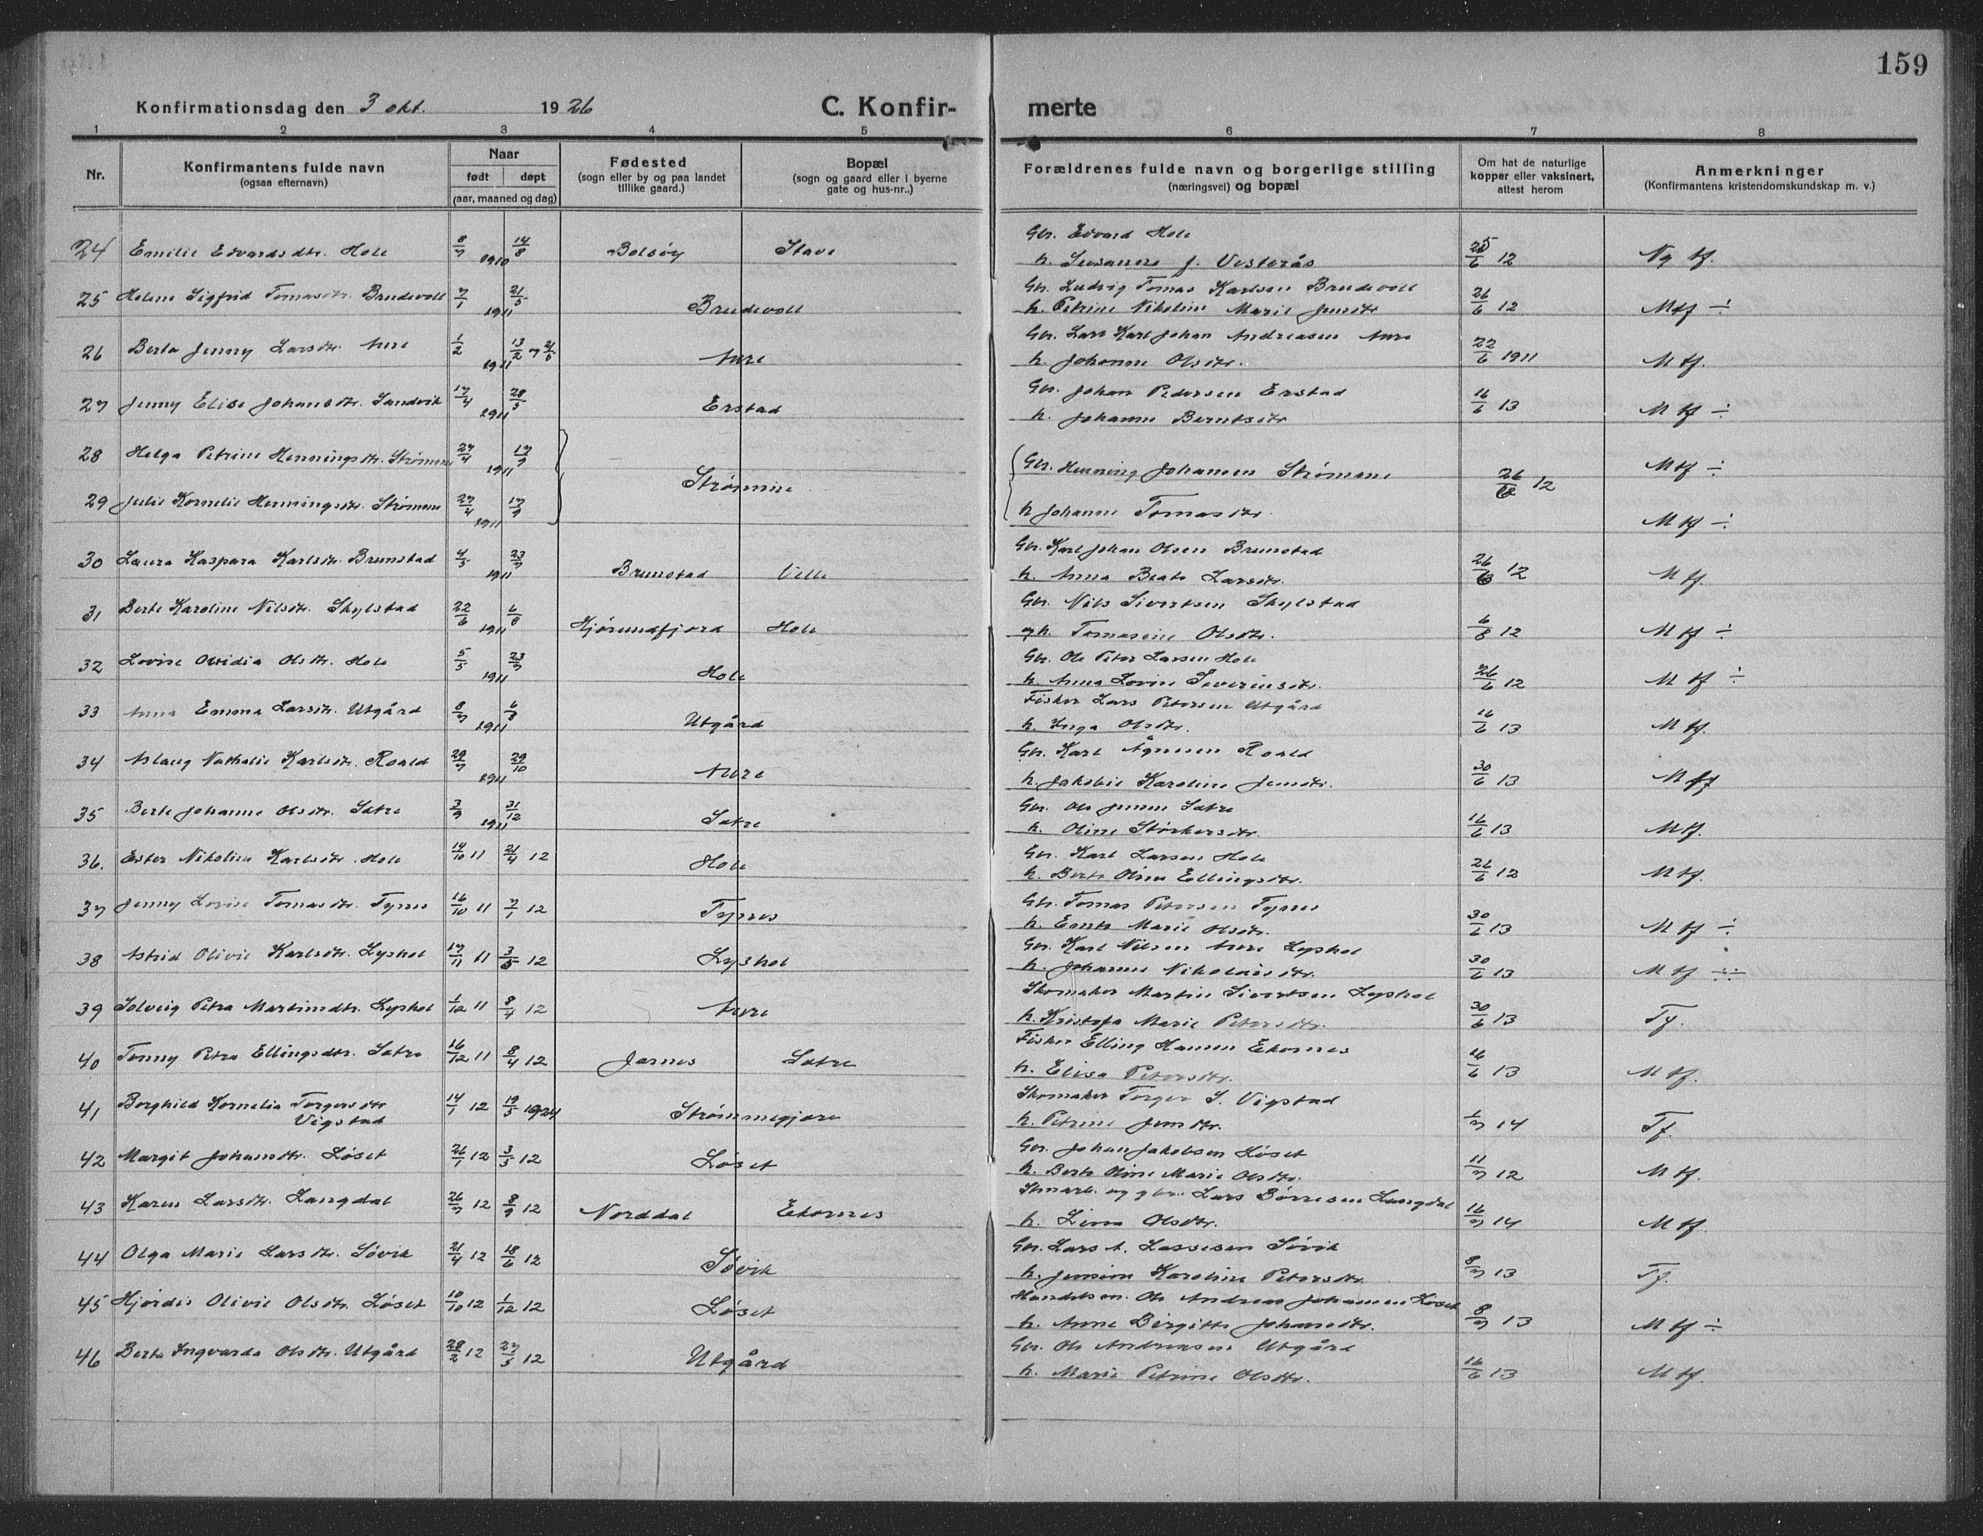 159
Konfirmationsdag den 3 okt. 1926 C. Konfir- merte
1 2 3 4 5 6 7 8
Nr. Konfirmantens fulde navn (ogsaa efternavn) Naar født døpt (aar, maaned og dag) Fødested (sogn eller by og paa landet tillike gaard.) Bopæl (sogn og gaard eller i byerne gate og hus-nr..) Forældrenes fulde navn og borgerlige stilling (næringsvei) og bopæl Om hat de naturlige kopper eller vaksinert, attest herom Anmerkninger (Konfirmantens kristendomskundskap m. v.)
Gbr. Edvard Hole
24 Emilie Edvardsdtr. Hole 8/7 1910 14/8 Bolsøy Stave h. Susanne J. Vesterås 25/6 12 Ng tf.
Gbr. Ludvig Tomas Karlsen Brudevoll
25 Helene Sigfrid Tomasdtr. Brudevoll 7/1 1911 21/5 Brudevoll h. Petrine Nikoline Marie Jensdtr 26/6 12 Mtf ÷
Gbr. Lars Karl Johan Andreasen Aure
26 Berta Jenny Larsdtr. Aure 1/2 1911 13/2 Aure h. Johanne Olsdtr. 22/6 1911 Mtf.
Gbr. Johan Pedersen Erstad
27 Jenny Elise Johansdtr. Sandvik 17/4 1911 28/5 Erstad h. Johanne Berntsdtr 16/6 13 Mtf ÷
28 Helga Petrine Henningsdtr. Strømme 27/4 1911 17/9 Mtf ÷
Gbr. Henning Johansen Strømme
Strømme 26/6 12
29 Julie Kornelie Henningsdtr. Strømme 27/4 1911 17/9 h Johanne Tomasdtr. Mtf ÷
Gbr. Karl Johan Olsen Brunstad
30 Laura Kaspara Karlsdtr. Brunstad 4/5 1911 23/7 Brunstad Velle h. Anna Beate Larsdtr. 26/6 12 Mtf.
Gbr. Nils Sivertsen Skylstad
31 Berte Karoline Nilsdtr. Skylstad 22/6 1911 6/8 Hjørundfjord Hole h. Tomasine Olsdtr. 6/8 12 Mtf ÷
Gbr. Ole Peter Larsen Hole
32 Lovise Ovidia Olsdtr. Hole 5/5 1911 23/7 Hole h. Anna Lovise Severinsdtr. 26/6 12 Mtf ÷
Fisker Lars Petersen Utgård
33 Anna Emma Larsdtr. Utgård 8/7 1911 6/8 Utgård h. Inga Olsdtr. 16/6 13 Mtf.
Gbr. Karl Roald
34 Aslaug Nathalie Karlsdtr. Roald 29/7 1911 29/10 Aure h. Jakobie Karoline Jensdtr. 30/6 13 Mtf
Gbr. Ole Jensen Satre
35 Berte Johanne Olsdtr. Satre 3/9 1911 31/12 Satre h. Oline Størkersdtr. 16/6 13 Mtf.
Gbr. Karl Larsen Hole
36. Ester Nikoline Karlsdtr. Hole 14/10 11 21/4 12 Hole h. Berte Oline Ellingsdtr. 26/6 12 Mtf.
Gbr. Tomas Petersen Tynes
37 Jenny Lovise Tomasdtr. Tynes 16/10 11 7/1 12 Tynes h. Marie Olsdtr. 30/6 13 Mtf ÷
Gbr. Karl Nilsen Aure Lyshol
38 Astrid Olivie Karlsdtr. Lyshol 17/11 11 3/5 12 Lyshol h. Johanne Nikolaisdtr. 30/6 13 Mtf ÷÷
Skomaker Martin Sivertsen Lyshol
39 Solveig Petra Martinsdtr. Lyshol 1/12 11 8/4 12 Aure h. Kristofa Marie Petersdtr. 30/6 13 Tf.
Fisker Elling Hansen Ekornes
40 Tonny Petra Ellingsdtr. Satre 16/12 11 8/4 12 Jarnes Satre h. Elisa Petersdtr. 16/6 13 Mtf.
Skomaker Torger S. Vigstad
41 Borghild Kornelia Torgersdtr Vigstad 14/1 12 19/5 1924 Strømmegjære h. Petrine Jensdtr. 1/7 14 Tf.
Gbr. Johan Jakobsen Løset
42 Margit Johansdtr. Løset 26/1 12 3/5 12 Løset h. Berte Oline Marie Olsdtr. 11/7 12 Mtf.
og gbr. Lars Børresen Langdal
43 Karen Larsdtr. Langdal 26/7 12 8/9 12 Norddal Ekornes h. Lina Olsdtr. 16/7 14 Mtf.
Gbr. Lars A. Lassesen Søvik
44 Olga Marie Larsdtr. Søvik 21/4 12 18/6 12 Søvik h. Jensine Karoline Petersdtr. 8/7 13 Tf.
Handelsm. Ole Andreas Johansen Løset
45 Hjørdis Olivie Olsdtr. Løset 10/10 12 1/12 12 Løset h. Anne Birgitte Johansdtr. 8/7 13 Mtf ÷
Gbr. Ole Andreasen Utgård
46 Berta Ingvarda Olsdtr. Utgård 28/2 12 27/5 12 Utgård h. Marie Petrine Olsdtr. 16/6 13 Mtf.